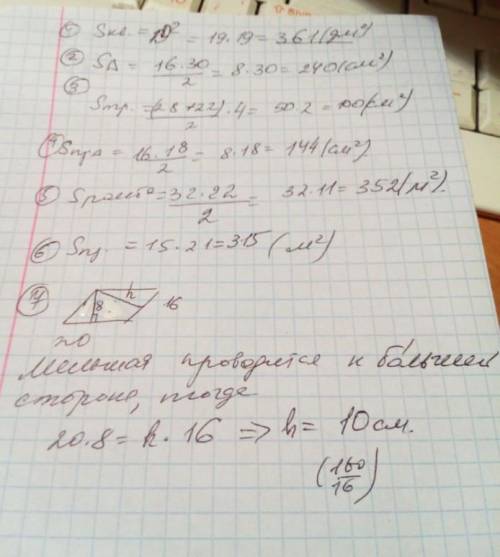 ① Sкв. = 19² = 19·19 = 361(дм²)
② SΔ = 16·30/2 = 8·30 = 240(см²)
③
Sтр. = (28+22)/2 · 4 = 50·2 = 100(м²)
④ SпрΔ = 16·18/2 = 8·18 = 144(см²)
⑤ Sромб = 32·22/2 = 32·11 = 352(м²).
⑥ Sпр. = 15·21 = 315 (м²)
⑦ 8 h h 16
20
Меньшая проводится к большей
стороне, тогда
20·8 = h·16 => h = 10 см.
(160/16)